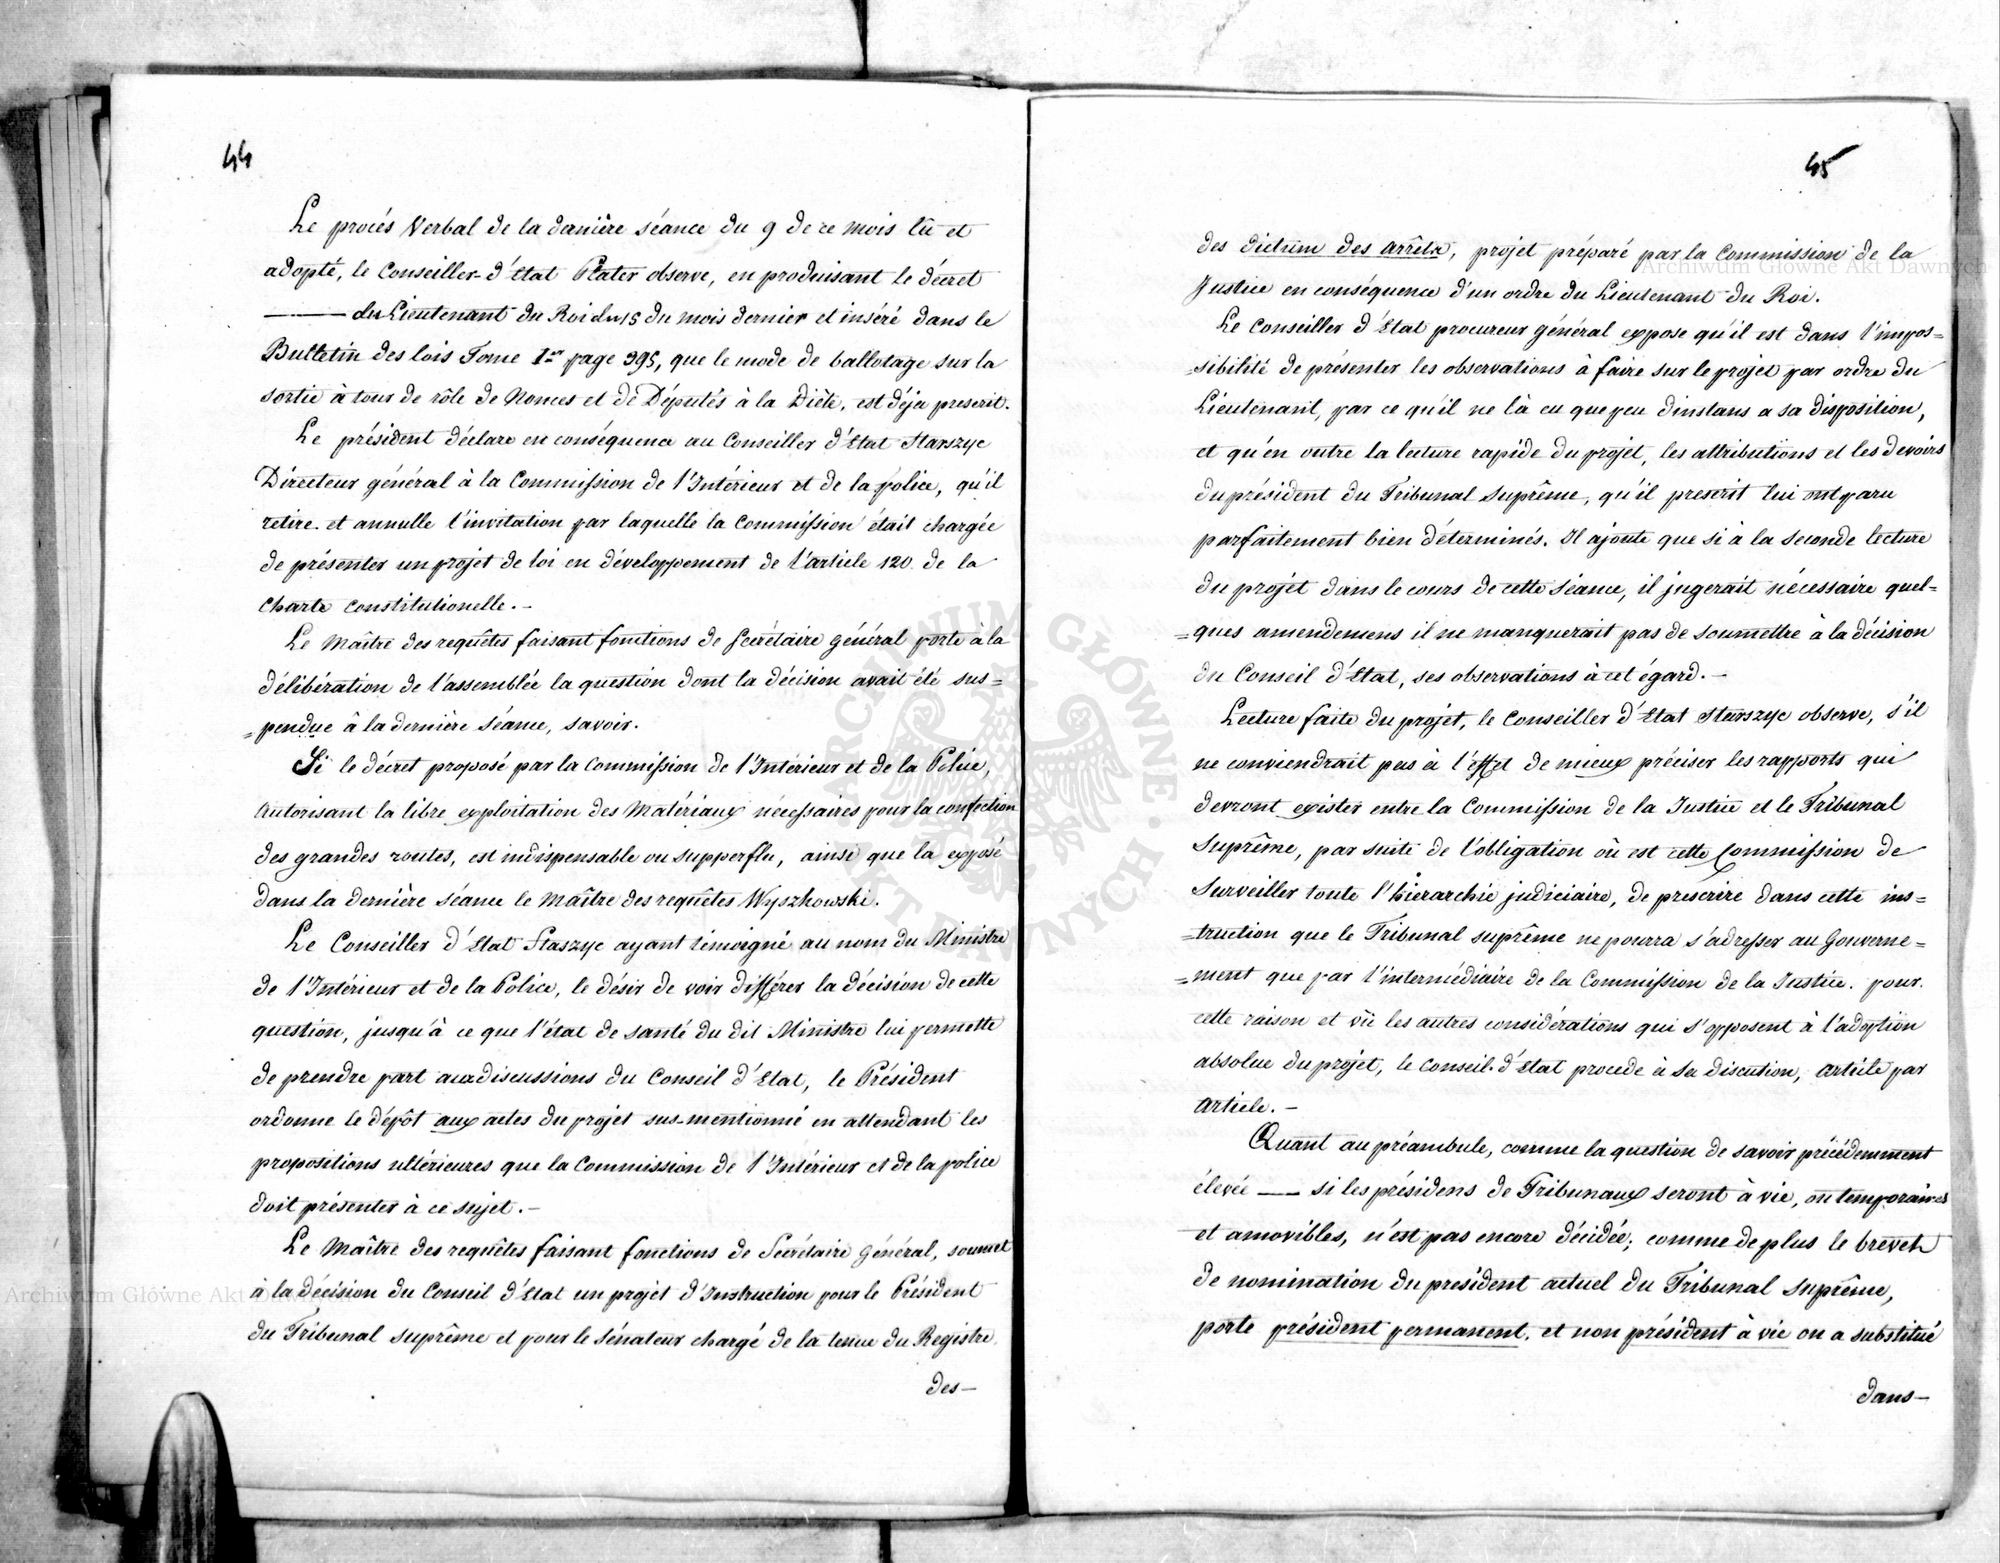 44
Le procés Verbal de la dernière séance du 9 de ce mois lû et
adopté, le Conseiller d'État Plater observe, en produisant le décret
——— du Lieutenant du Roi du 15 du mois dernier et inséré dans le
Bulletin des lois Tome 1er page 395, que le mode de ballotage sur la
sortie à tour de rôle de Nonces et de Députés à la Diète, est déja prescrit.
Le président déclare en conséquence au Conseiller d'État Starszyc
Directeur général à la Commission de l'Intérieur et de la police, qu'il
retire et annulle l'invitation par laquelle la Commission était chargée
de présenter un projet de loi en développement de l'article 120 de la
Charte constitutionelle.-
Le Maître des requêtes faisant fonctions de Secrétaire général porte à la
délibération de l'assemblée la question dont la décision avait été sus=
=pendue à la dernière séance, savoir.
Si le décret proposé par la Commission de l'Intérieur et de la Police,
Autorisant la libre exploitation des Matériaux nécessaires pour la confection
des grandes routes, est indispensable ou supperflu, ainsi que la exposé
dans la dernière séance le Maître des requêtes Wyszkowski.
Le Conseiller d'État Staszyc ayant témoigné au nom du Ministre
de l'Intérieur et de la Police, le désir de voir différer la décision de cette
question, jusqu'à ce que l'état de santé du dit Ministre lui permette
de prendre part aux discussions du Conseil d'État, le Président
ordonne le dépôt aux actes du projet sus-mentionné en attendant les
propositions ultérieures que la Commission de l'Intérieur et de la police
doit présenter à ce sujet.-
Le Maître des requêtes faisant fonctions de Secrétaire Général, soumet
à la décision du Conseil d'État un projet d'Instruction pour le Président
du Tribunal suprême et pour le Sénateur chargé de la tenue du Registre
des-
45
des dictum des arrêts, projet préparé par la Commission de la
Justice en conséquence d'un ordre du Lieutenant du Roi.
Le Conseiller d'État procureur général expose qu'il est dans l'impos=
=sibilité de présenter les observations à faire sur le projet par ordre du
Lieutenant, par ce qu'il ne l'à eu que peu d'instans a sa disposition,
et qu'en outre la lecture rapide du projet, les attributions et les devoirs
du président du Tribunal Suprême, qu'il prescrit lui ont paru
parfaitement bien déterminés. Il ajoute que si à la seconde lecture
du projet dans le cours de cette séance, il jugerait nécessaire quel=
=ques amendemens il ne manquerait pas de soumettre à la décision
du Conseil d'État, ses observations à cet égard.-
Lecture faite du projet, le Conseiller d'État Starszyc observe, s'il
ne conviendrait pas à l'effet de mieux préciser les rapports qui
devront exister entre la Commission de la Justice et le Tribunal
Suprême, par suite de l'obligation où est cette Commission de
Surveiller toute l'hierarchie judiciaire, de prescrire dans cette ins=
=truction que le Tribunal suprême ne pourra s'adresser au Gouverne=
=ment que par l'intermédiaire de la Commission de la Justice. pour
cette raison et vû les autres considérations qui s'opposent à l'adoption
absolue du projet, le Conseil d'État procede à sa discution, article par
Article.-
Quant au préambule, comme la question de savoir précédemment
élevée —— si les présidens de Tribunaux seront à vie, ou temporaires
et amovibles, n'est pas encore décidée; comme de plus le brevet
de nomination du president actuel du Tribunal Suprême,
porte président permanent, et non président à vie on a substitué
dans-
Archiwum Główne Akt Dawnych
Archiwum Główne Akt Dawnych
ARCHIWUM GŁÓWNE AKT DAWNYCH